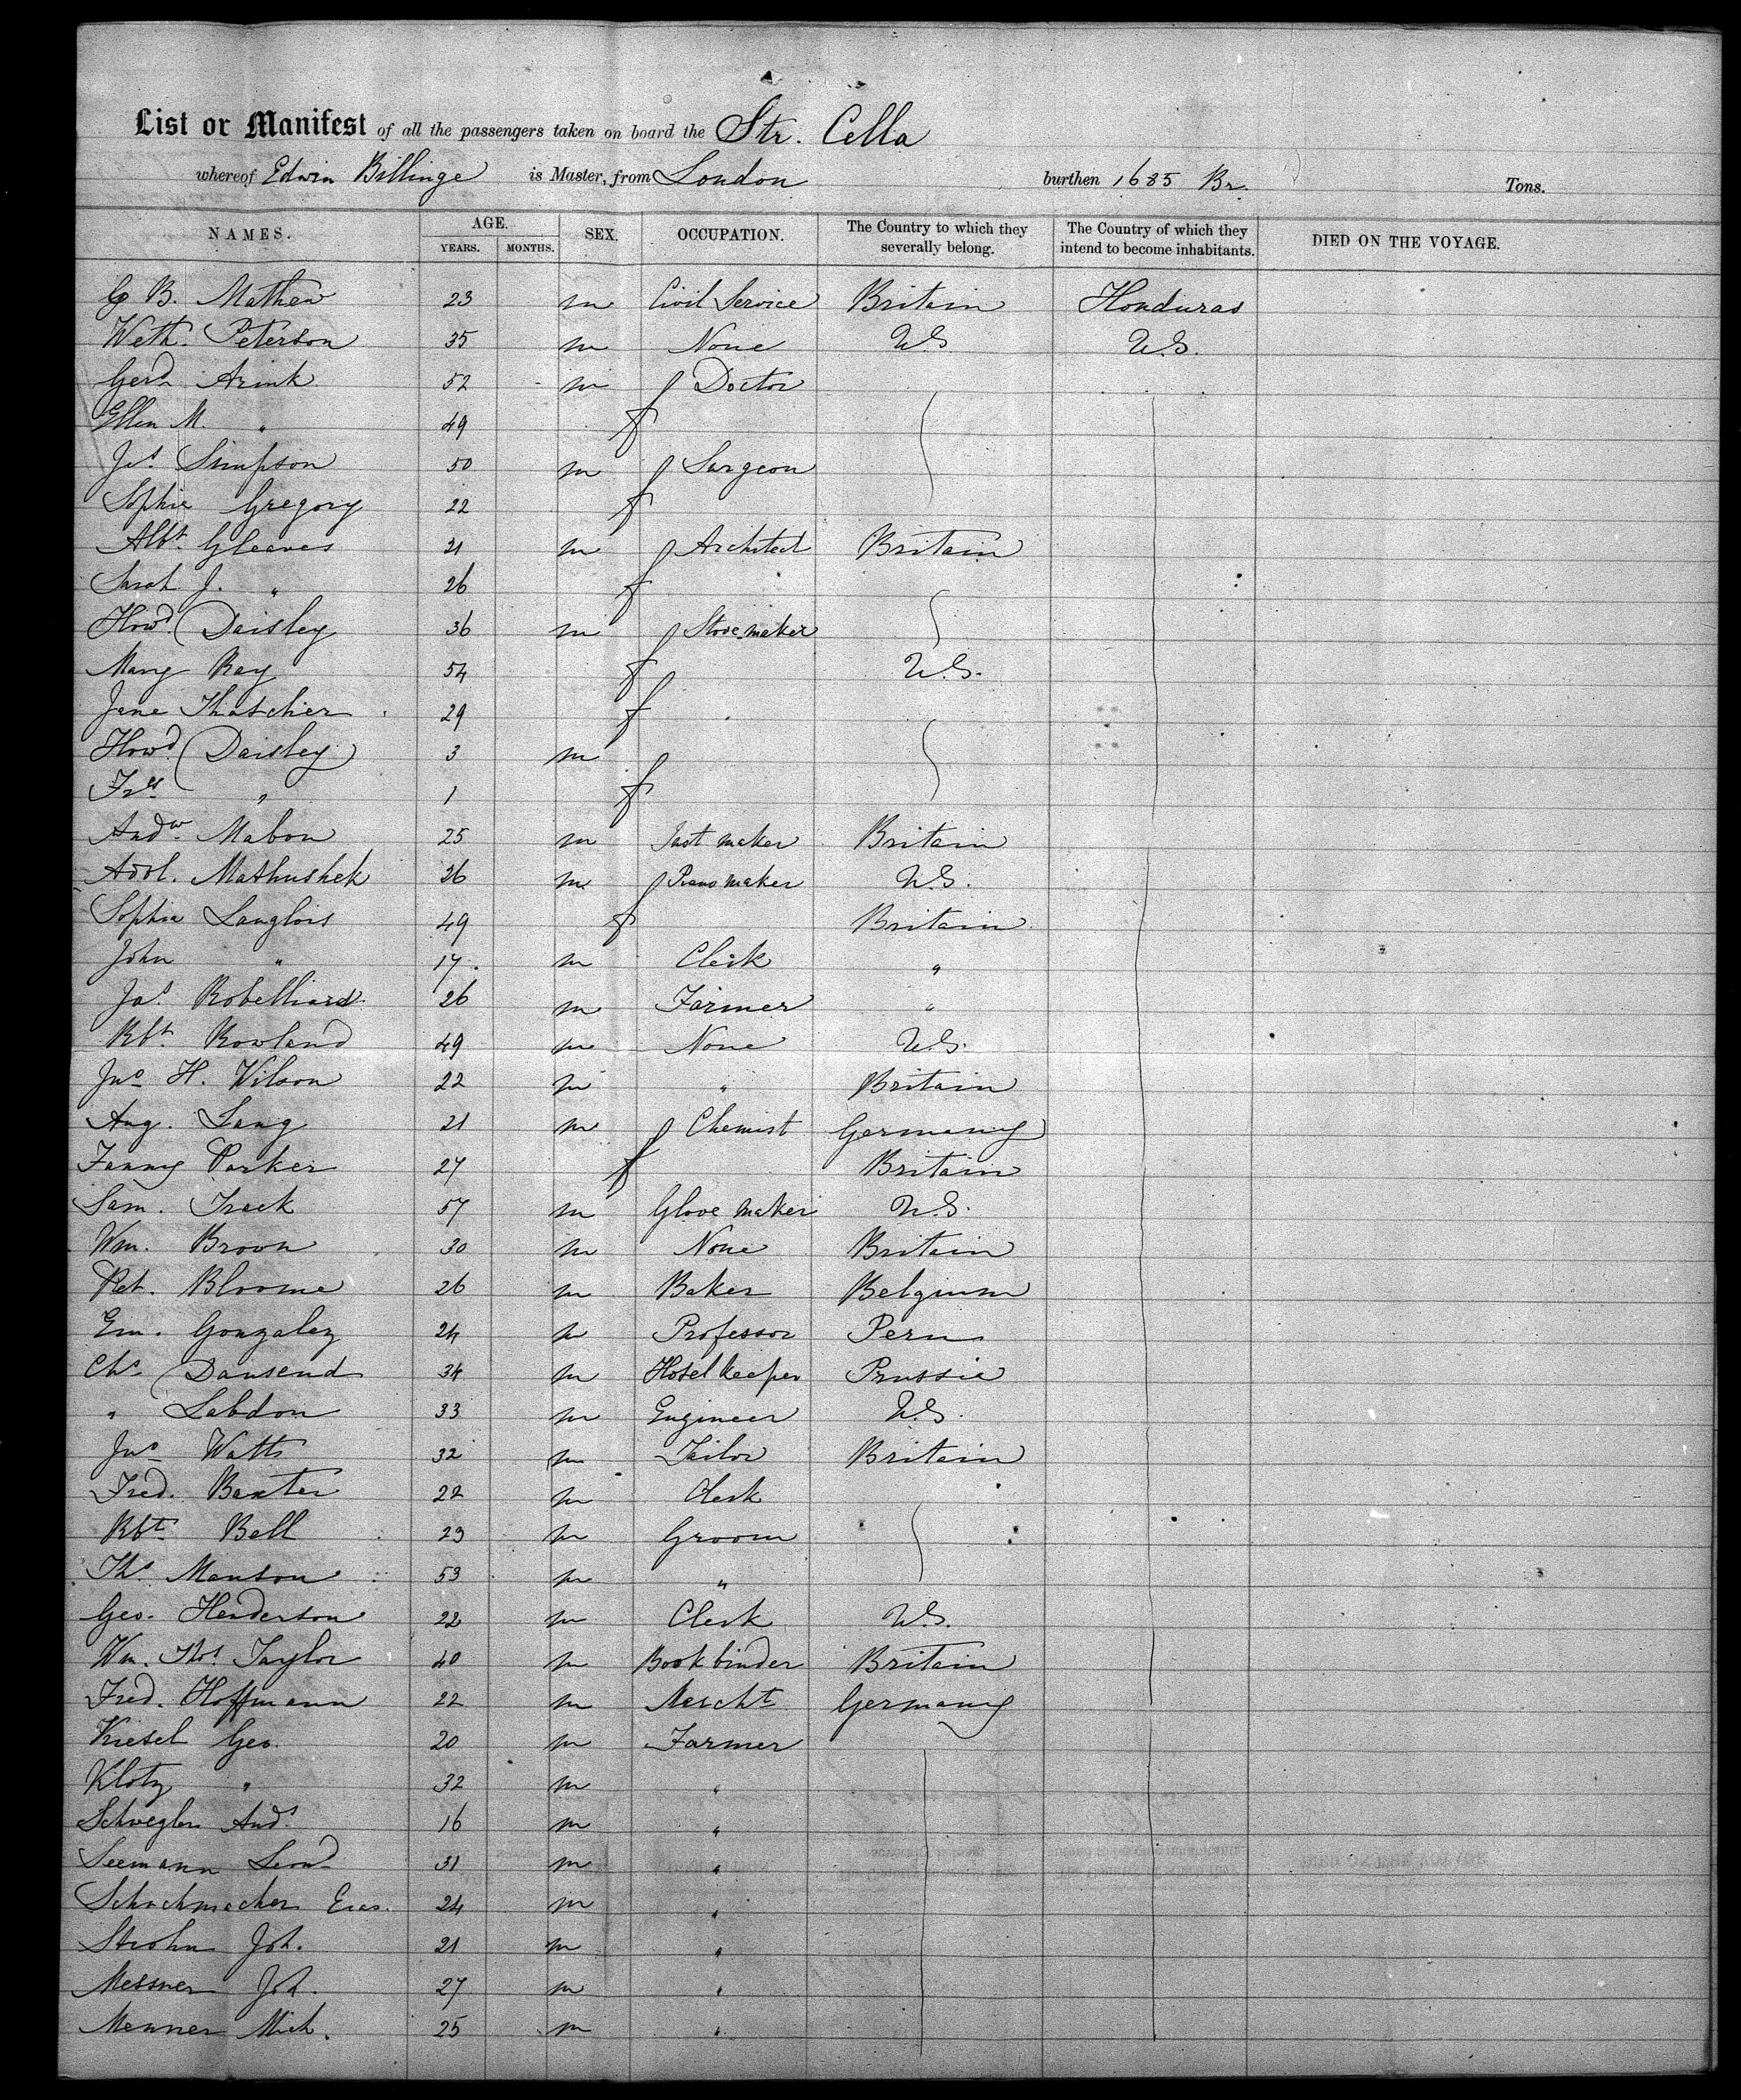 List or Manifest of all the passengers taken on board the Str. Cella
whereof Edwin Billinge is Master, from London burthen 1685 Br. Tons.
NAMES. AGE. YEARS. MONTHS. SEX. OCCUPATION. The Country to which they severally belong. The Country of which they intend to become inhabitants. DIED ON THE VOYAGE.
B. Mathew 23 m Civil Service Britain Honduras
Weth. Peterson 35 m None U.S. U.S.
Gerd Arink 52 m Doctor
Ellen M. " 49 f
Jas Simpson 50 m Surgeon
Sophie Gregory 22 f
Albt. Gleaves 21 m Architect Britain
Sarah J. " 26 f
Howd. Daisley 36 m Stove maker
Mary Ray 54 f U.S.
Jane Thatcher 29 f
Howd. Daisley 3 m
Frs " 1 f
Andw Mabon 25 m maker Britain
Adol. Mathushek 26 m Piano maker U.S.
Sophia Langlois 49 f Britain
John " 17 m Clerk "
Jas Robelliard 26 m Farmer "
Rbt. Rowland 49 m None U.S.
Jno H. Wilson 22 m " Britain
Aug. Lang 21 m Chemist Germany
Fanny Parker 27 f Britain
Sam. Track 57 m Glove maker U.S.
Wm. Brown 30 m None Britain
Pet. Bloome 26 m Baker Belgium
Em. Gonzalez 24 m Professor Peru
Chs Dansend 34 m Hotel keeper Prussia
" Labdon 33 m Engineer U.S.
Jno Watts 32 m Tailor Britain
Fred. Baxter 22 m Clerk
Rbt Bell 23 m Groom
Ths Manson 53 m "
Geo. Henderson 22 m Clerk U.S.
Wm. Thos Taylor 40 m Book binder Britain
Fred. Hoffmann 22 m Mercht Germany
Kiesel Geo. 20 m Farmer
Klotz " 32 m "
Schwegler Ands 16 m "
Seemann Leond 31 m "
Schuchmacher Eras. 24 m "
Strohn Joh. 21 m "
Messner Joh. 27 m "
Menner Mich. 25 m "